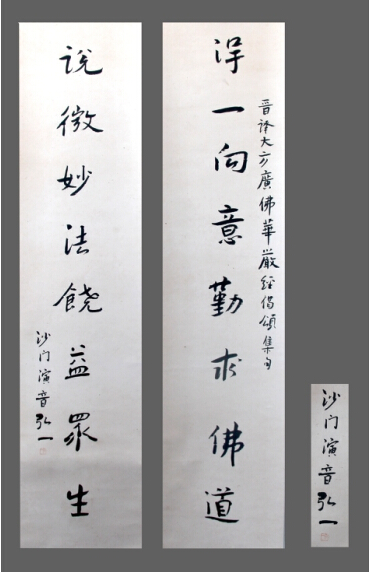 晉譯大方廣佛華嚴經偈頌集句
得一向意勤求佛道
說微妙法饒益眾生
沙门演音弘一
沙门演音弘一